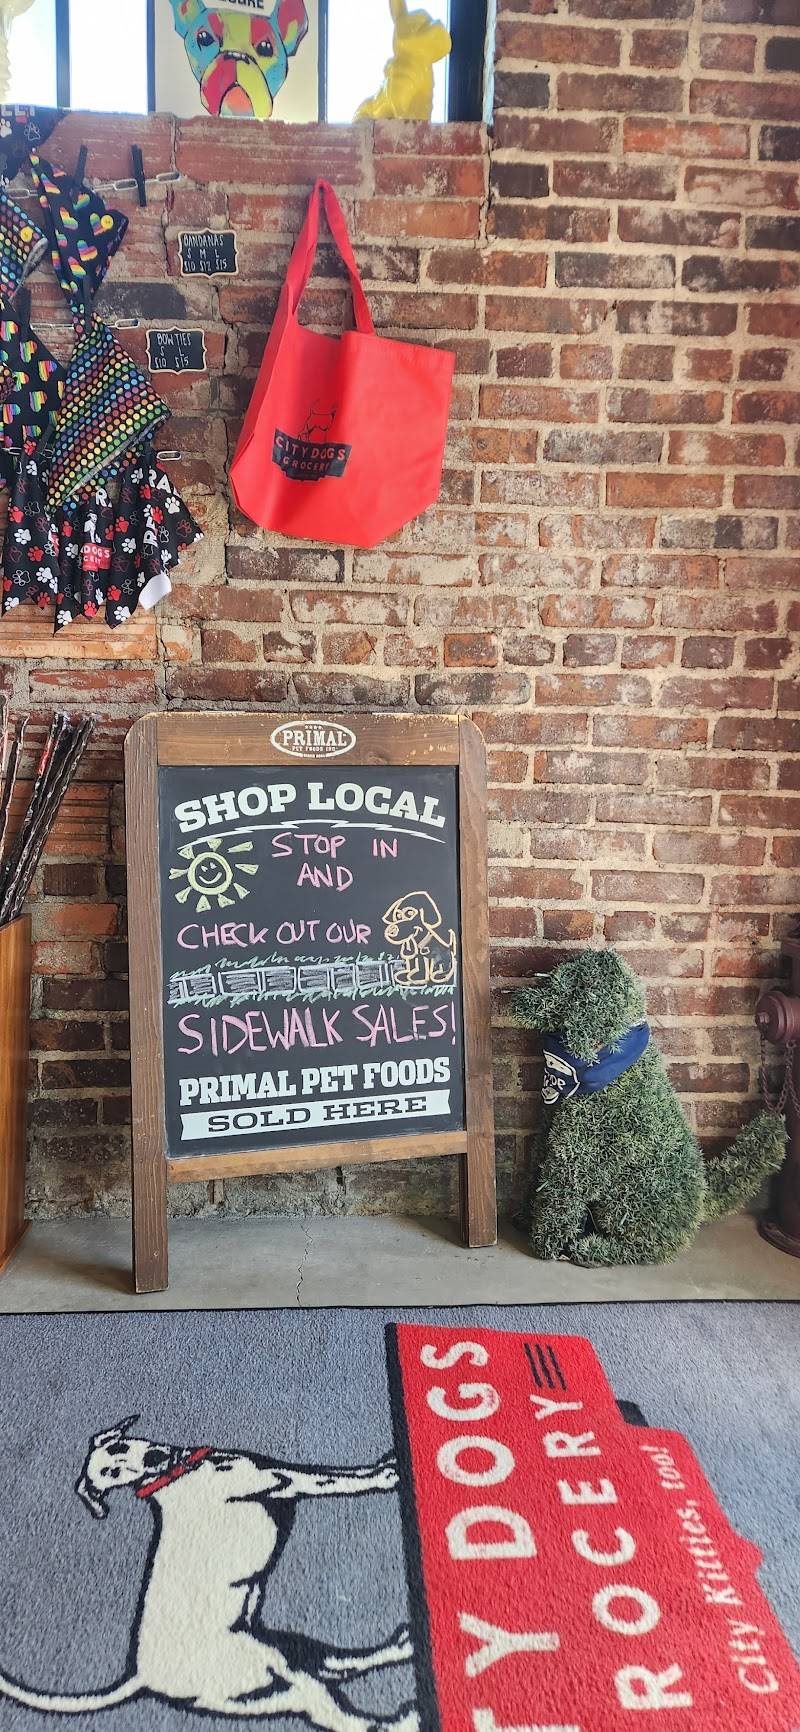 BANDANAS
S M L
$10 $12 $15
BOW TIES
S L
$10 $15
CITY DOGS
GROCERY
DOGS
PRIMAL
PET FOODS INC
SHOP LOCAL
STOP IN
AND
CHECK OUT OUR
SIDEWALK SALES!
PRIMAL PET FOODS
SOLD HERE
TY DOGS
ROCERY
City Kitties, too!